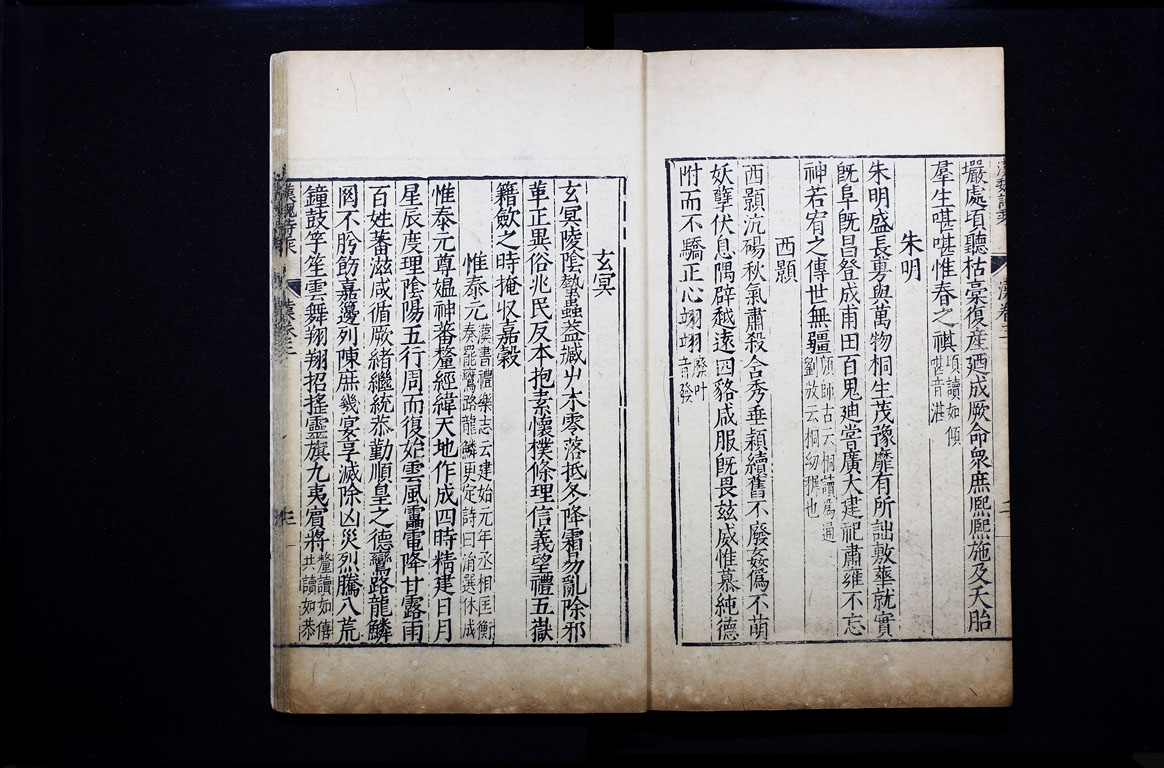 巖處頃聽枯槀復産廼成厥命衆庶熙熙施及夭胎
羣生啿啿惟春之祺頃讀如傾啿音湛
朱明
朱明盛長旉與萬物桐生茂豫靡有所詘敷華就實
旣阜旣昌登成甫田百鬼廸嘗廣大建祀肅雍不忘
神若宥之傳世無疆顔師古云桐讀爲通劉攽云桐幼穉也
西顥
西顥沆碭秋氣肅殺含秀垂穎續舊不廢姦僞不萌
妖孽伏息隅辟越遠四貉咸服旣畏兹威惟慕純德
附而不驕正心翊翊廢叶音發
玄冥
玄冥陵陰蟄蟲葢臧屮木零落抵冬降霜易亂除邪
革正異俗兆民反本抱素懷樸條理信義望禮五嶽
籍歛之時掩收嘉穀
惟泰元漢書禮樂志云建始元年丞相匡衡奏罷鸞路龍鱗更定詩曰涓選休成
惟泰元尊媪神蕃釐經緯天地作成四時精建日月
星辰度理陰陽五行周而復始雲風靁雷降甘露雨
百姓蕃滋咸循厥緒繼統恭勤順皇之德鸞路龍鱗
罔不肹飭嘉籩列陳庶幾宴享滅除凶災烈騰八荒
鐘鼓竽笙雲舞翔翔招搖靈旗九夷賓將釐讀如僖共讀如恭